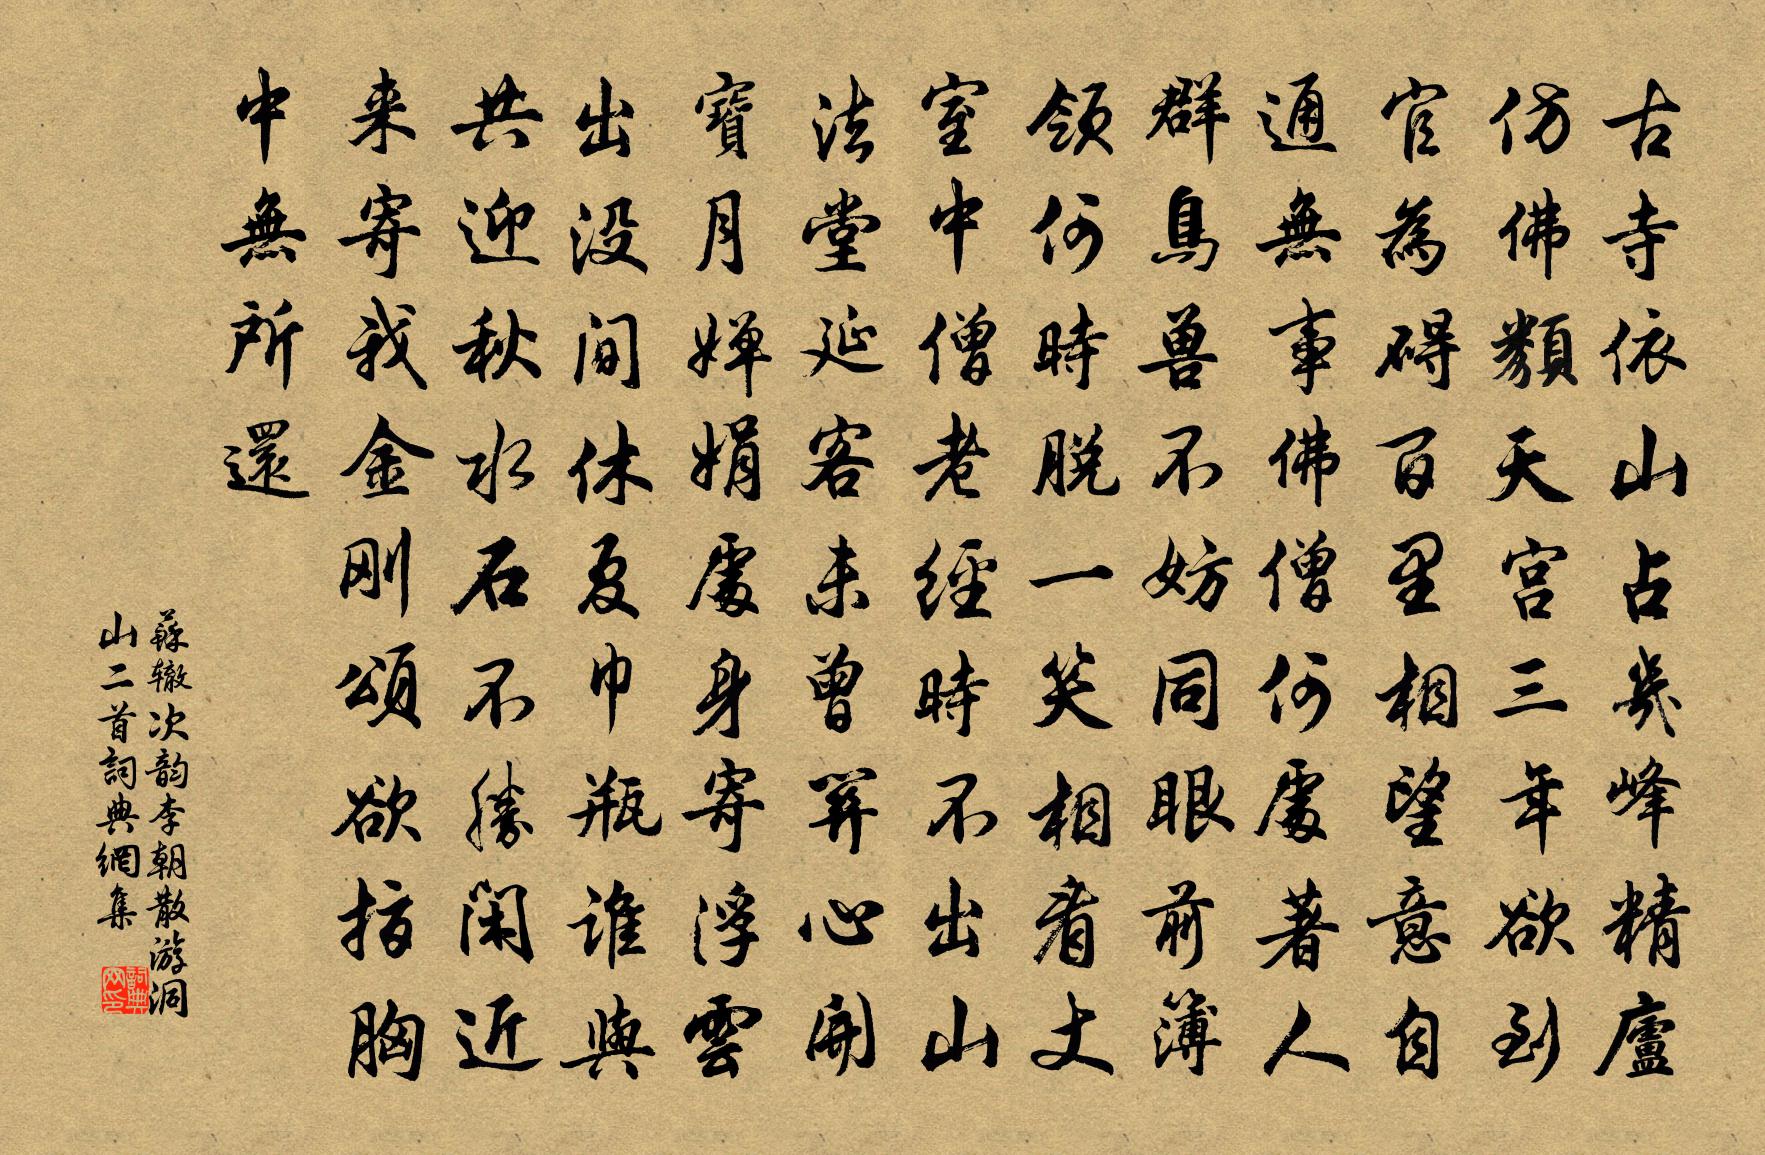 古寺依山占幾峰精廬
仿佛類天宮三年欲到
官為碍百里相望意自
通無事佛僧何處著人
群鳥兽不妨同眼前簿
領何時脱一笑相看丈
室中僧老經時不出山
法堂延客未曾關心開
寶月嬋娟處身寄浮雲
出没間休夏巾瓶誰與
共迎秋水石不勝閑近
来寄我金刚頌欲指胸
中無所還
蘇辙次韵李朝散游洞
山二首詞典網集
詞典网印